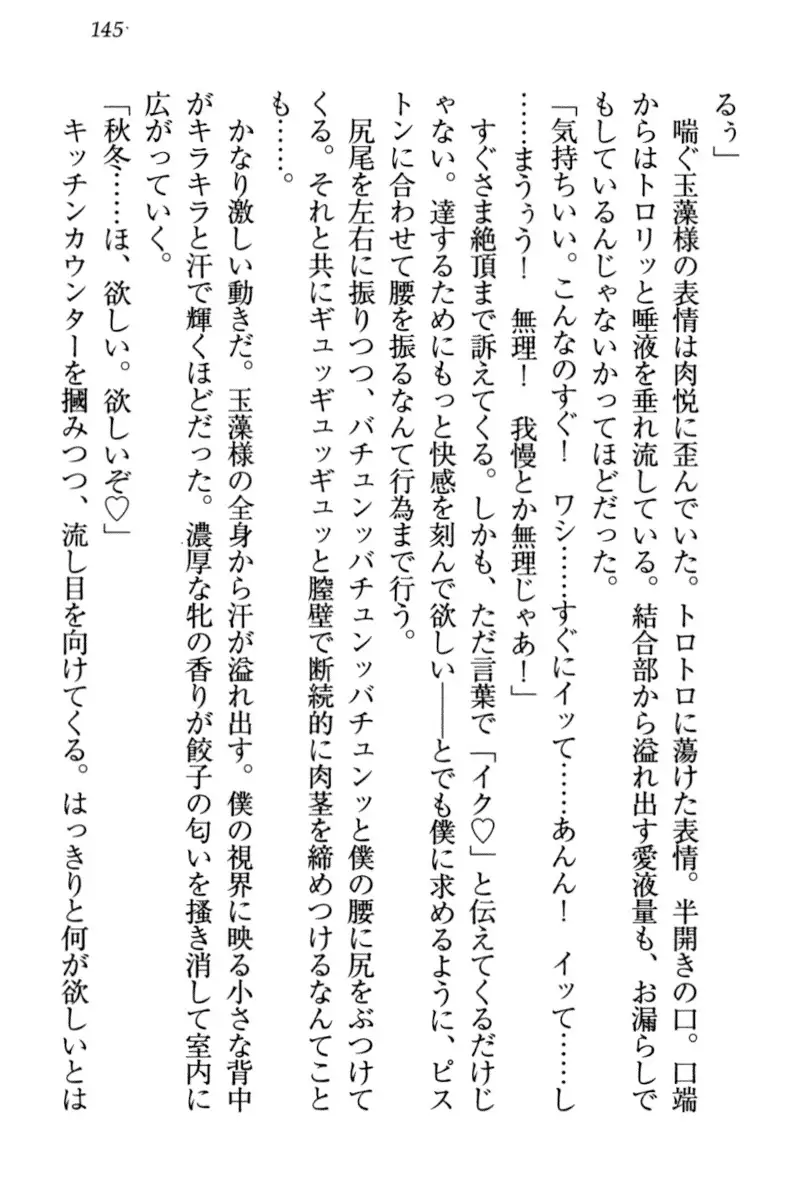 145
るぅ」
喘ぐ玉藻様の表情は肉悦に歪んでいた。トロトロに蕩けた表情。半開きの口。口端
からはトロリッと唾液を垂れ流している。結合部から溢れ出す愛液量も、お漏らしで
もしているんじゃないかってほどだった。
「気持ちいい。こんなのすぐ！　ワシ……すぐにイッて……あんん！　イッて……し
……まうぅう！　無理！　我慢とか無理じゃあ！」
すぐさま絶頂まで訴えてくる。しかも、ただ言葉で「イク♡」と伝えてくるだけじ
ゃない。達するためにもっと快感を刻んで欲しい――とでも僕に求めるように、ピス
トンに合わせて腰を振るなんて行為まで行う。
尻尾を左右に振りつつ、バチュンッバチュンッと僕の腰に尻をぶつけて
くる。それと共にギュッギュッギュッと膣壁で断続的に肉茎を締めつけるなんてこと
も……。
かなり激しい動きだ。玉藻様の全身から汗が溢れ出す。僕の視界に映る小さな背中
がキラキラと汗で輝くほどだった。濃厚な牝の香りが餃子の匂いを掻き消して室内に
広がっていく。
「秋冬……ほ、欲しい。欲しいぞ♡」
キッチンカウンターを摑みつつ、流し目を向けてくる。はっきりと何が欲しいとは